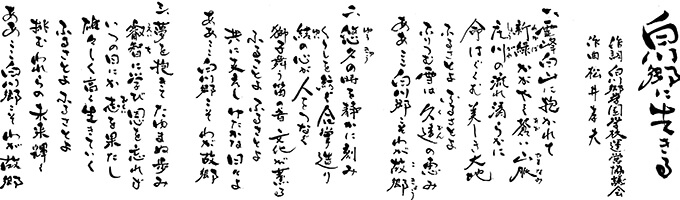 白川郷に生きる
作詞 白川郷学園学校運営協議会
作曲 松井孝夫
一、霊峰白山に抱かれて
新緑かがやく蒼い山脈
庄川の流れ清らかに
命はぐくむ美しき大地
ふるさとよ ふるさとよ
ふりつむ雪は久遠の恵み
ああここ白川郷こそわが故郷
二、悠久の時を静かに刻み
くらしを紡ぐ合掌造り
結の心が人をつなぐ
獅子舞う笛の音 文化が薫る
ふるさとよ ふるさとよ
共に支えしゆたかな日々よ
ああここ白川郷こそわが故郷
三、夢を抱きてたゆまぬ歩み
叡智に学び 恩を忘れず
いつの日にか志を果たし
雄々しく高く生きていく
ふるさとよ ふるさとよ
挑むわれらの未来輝く
ああここ白川郷こそわが故郷